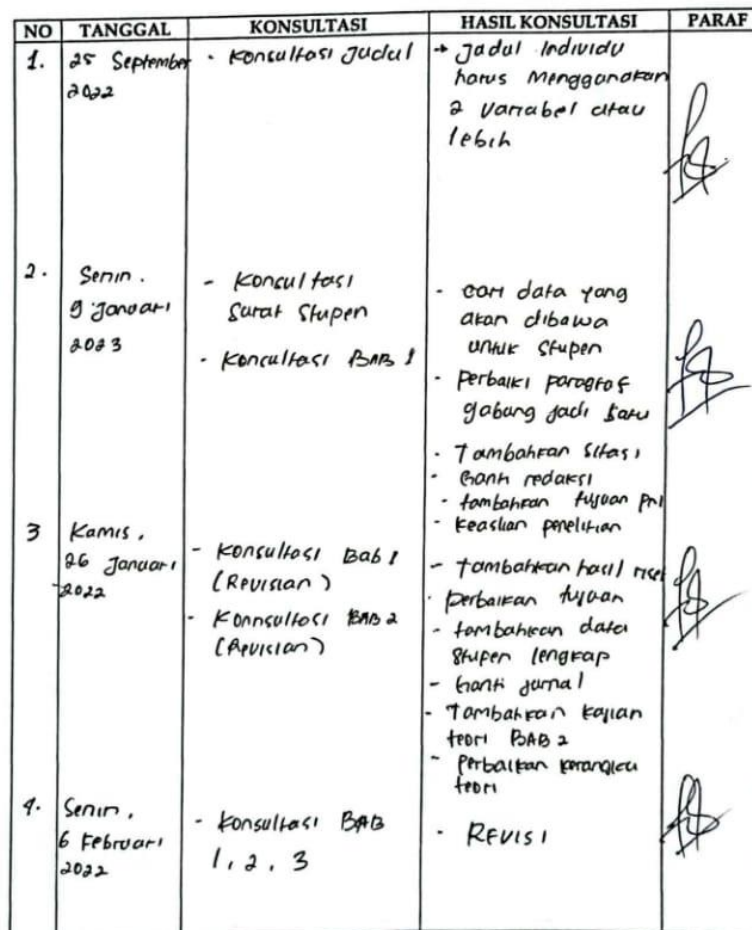 NO TANGGAL KONSULTASI HASIL KONSULTASI PARAF
1. 25 September
2022
- Konsultasi Judul
→ Judul Individu
harus Menggunakan
2 Variabel atau
lebih
2. Senin.
9 Januari
2023
- Konsultasi
Surat Stupen
- Konsultasi BAB 1
- cari data yang
akan dibawa
untuk Stupen
- Perbaiki paragraf
gabung jadi satu
- Tambahkan Sitasi
- Ganti redaksi
- tambahkan tujuan
- Keaslian penelitian
3 Kamis,
26 Januari
2022
- Konsultasi Bab 1
(Revisian)
- Konnsultasi BAB 2
(Revisian)
- Tambahkan hasil riset
- Perbaikan tujuan
- tambahkan data
Stupen lengkap
- Ganti jurnal
- Tambahkan Kajian
teori BAB 2
- Perbaikan kerangka
teori
4. Senin,
6 Februari
2022
- Konsultasi BAB
1, 2, 3
- REVISI